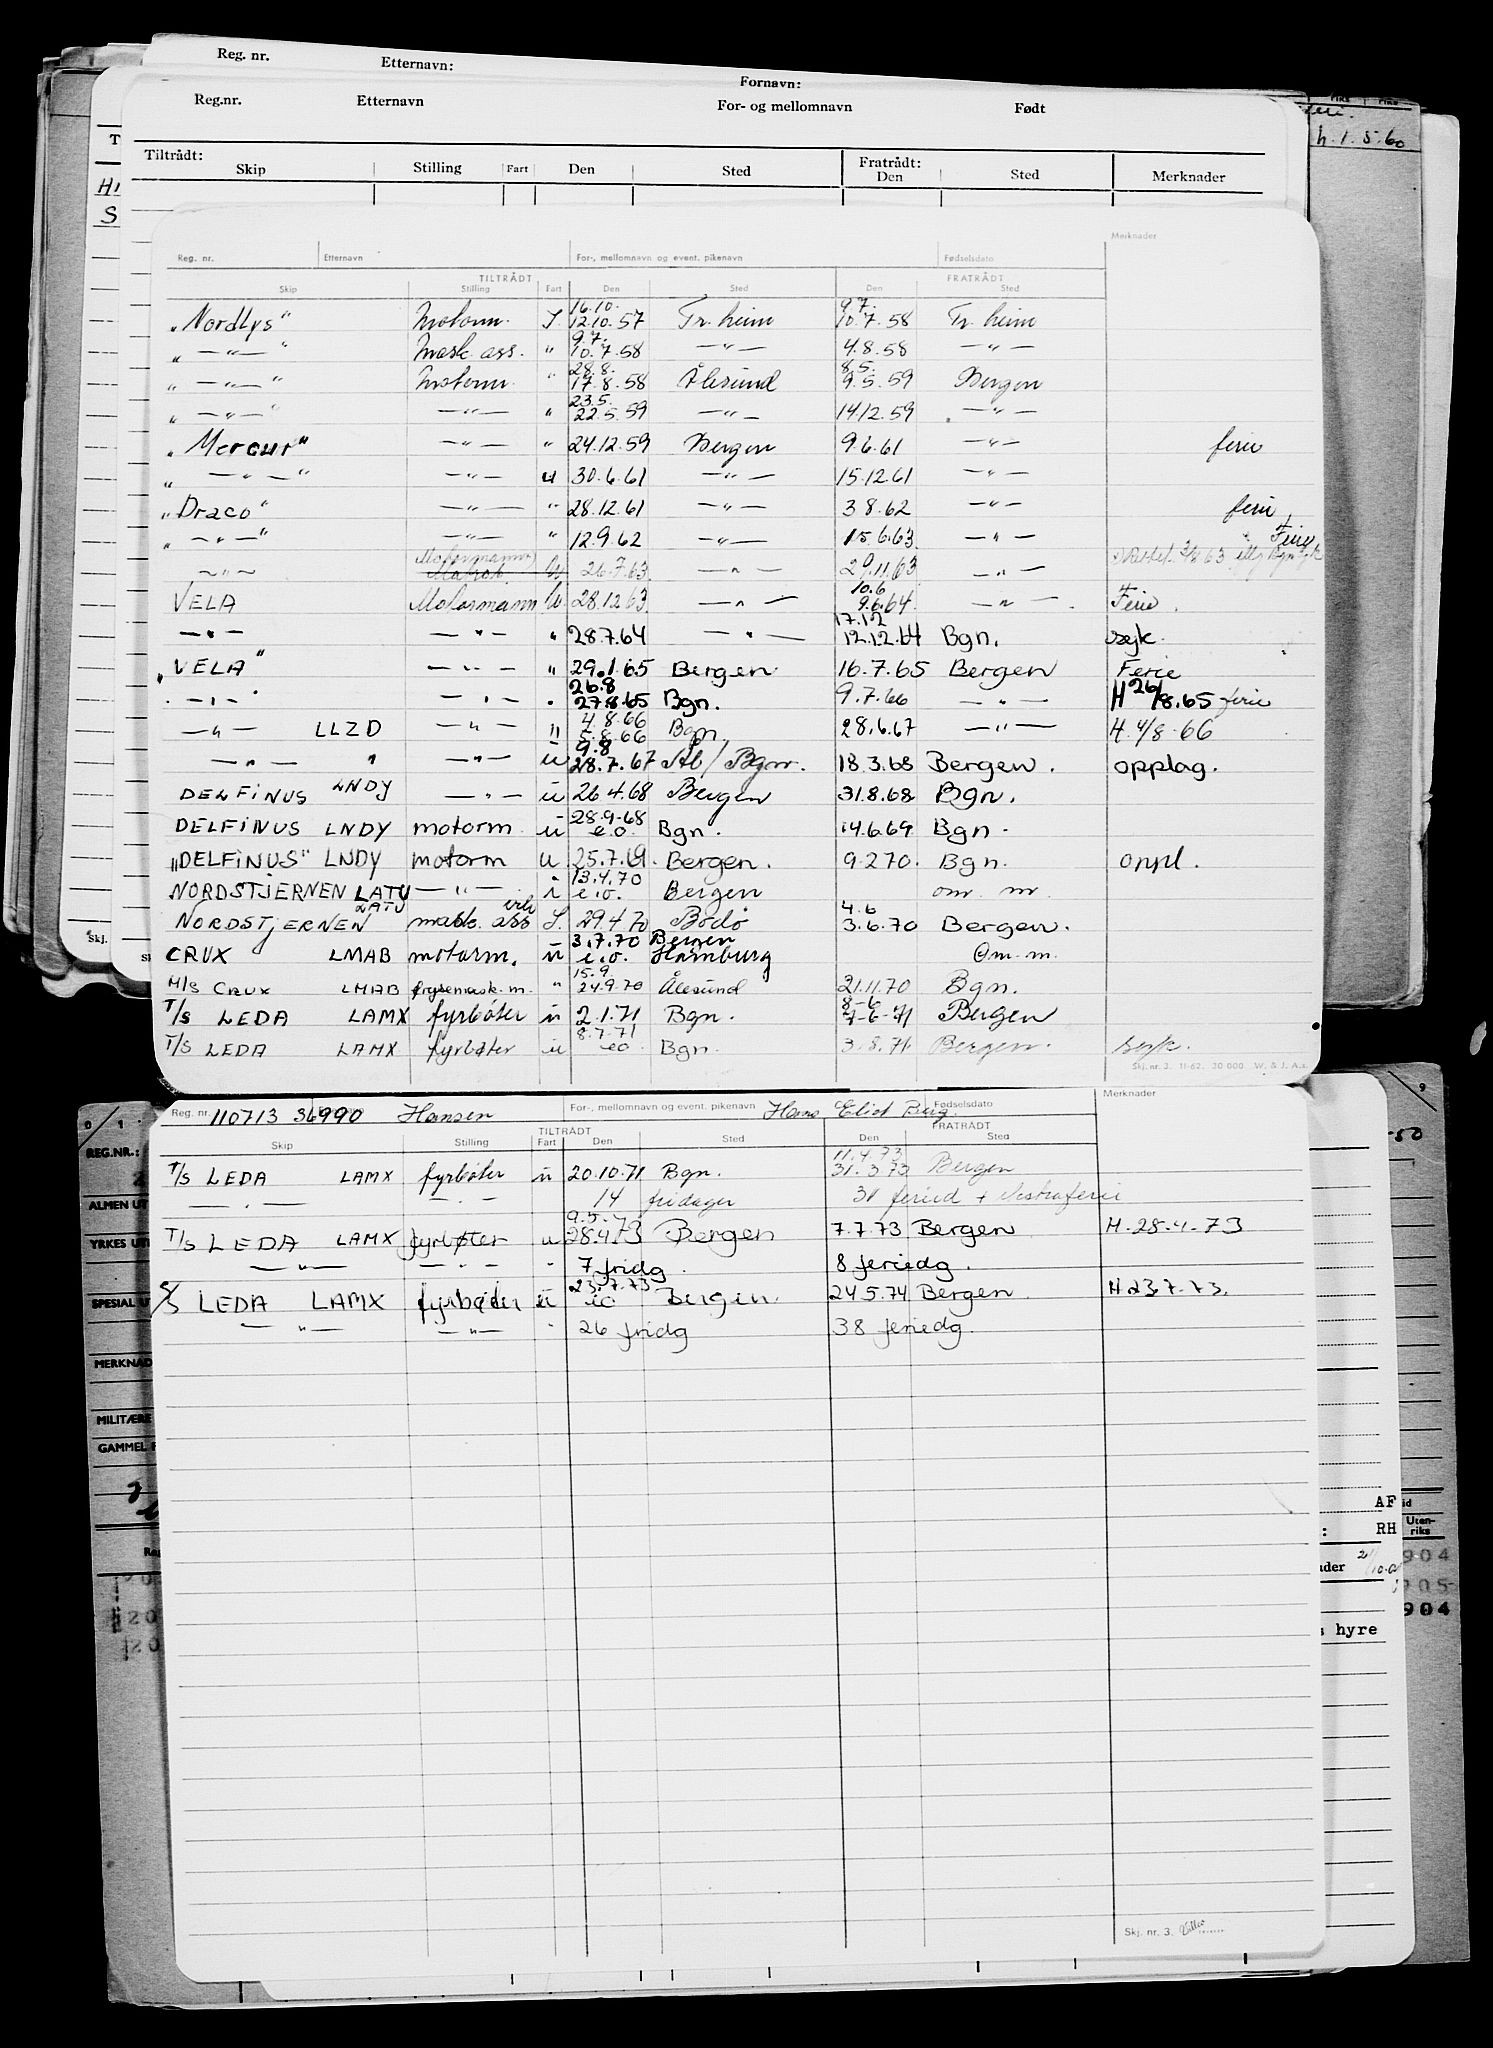 Reg. nr. Etternavn: Fornavn:
Reg.nr. Etternavn For- og mellomnavn Født
h. 1.5.60
Tiltrådt: Fratrådt:
Skip Stilling Fart Den Sted Den Sted Merknader
Reg. nr. Etternavn For-, mellomnavn og event. pikenavn Fødselsdato Merknader
TILTRÅDT FRATRÅDT
Skip Stilling Fart Den Sted Den Sted
16.10. 9.7.
"Nordlys" Motorm. I. 12.10.57 Tr.heim 10.7.58 Tr.heim
9.7.
" —"— " Mask. ass. " 10.7.58 —"— 4.8.58 —"—
28.8. 8.5.
" —"— " Motorm. " 17.8.58 Ålesund 9.5.59 Bergen
23.5.
" —"— " —"— " 22.5.59 —"— 14.12.59 —"—
"Mercur" —"— " 24.12.59 Bergen 9.6.61 —"— ferie
" —"— " —"— u 30.6.61 —"— 15.12.61 —"—
"Draco" —"— " 28.12.61 —"— 3.8.62 —"— ferie
" —"— " —"— 12.9.62 —"— 15.6.63 —"— Ferie
Motormann
—"— Matros. U 26.7.63 —"— 29.11.63 —"—
10.6
VELA Motormann U. 28.12.63 —"— 9.6.64 —"— Ferie.
17.12
—"— —"— " 28.7.64 —"— 12.12.64 Bgn. sejk.
"VELA" —"— " 29.1.65 Bergen 16.7.65 Bergen Ferie
26.8
" —"— " —"— " 27.8.65 Bgn. 9.7.66 —"— H 26/8.65 ferie
4.8.66
—"— LLZD —"— " 5.8.66 Bgn. 28.6.67 —"— H. 4/8-66
9.8
—"— " —"— u 28.7.67 Al/Bgn. 18.3.68 Bergen. opplag.
DELFINUS LNDY —"— u 26.4.68 Bergen 31.8.68 Bgn.
28.9.68
DELFINUS LNDY motorm u e.o. Bgn. 14.6.69 Bgn.
"DELFINUS" LNDY motorm u 25.7.69. Bergen. 9.2.70. Bgn. oppl.
13.4.70
NORDSTJERNEN LATU —"— i e.o. Bergen om. m
LATU 4.6
NORDSTJERNEN mask. ass I. 29.4.70 Bodø 3.6.70 Bergen.
3.7.70 Bergen
CRUX LMAB motorm. u e.o. Hamburg Om. m.
15.9
M/S CRUX LMAB frysemask. m. " 24.9.70 Ålesund 21.11.70 Bgn.
8-6
T/S LEDA LAMX fyrbøter u 2.1.71 Bgn. 7-6-71 Bergen
8.7.71
T/S LEDA LAMX fyrbøter u eo. Bgn. 3.8.71 Bergen. sejk.
Skj. nr. 3. 11-62. 30 000. W. & J. A.s.
Reg. nr. 110713 36990 Hansen For-, mellomnavn og event. pikenavn Hans Eliot Berg. Fødselsdato Merknader
TILTRÅDT FRATRÅDT
Skip Stilling Fart Den Sted Den Sted
11.4.73
T/S LEDA LAMX fyrbøter u 20.10.71 Bgn. 31.3.73 Bergen
—"— —"— 14 fridager 31 feried + ekstraferie
9.5.
T/S LEDA LAMX fyrbøter u 28.4.73 Bergen 7.7.73 Bergen H-28-4-73
—"— —"— " 7 fridg. 8 feriedg.
23.7.73
S/S LEDA LAMX fyrbøter u eo Bergen. 24.5.74 Bergen H 23.7.73.
—"— —"— " 26 fridg 38 feriedg.
Skj. nr. 3.
REG.NR.:
ALMEN UT
YRKES UT
SPESIAL U
MERKNAD
MILITÆRE
GAMMEL
AF
Uten-
riks
RH
904
905
904
hyre